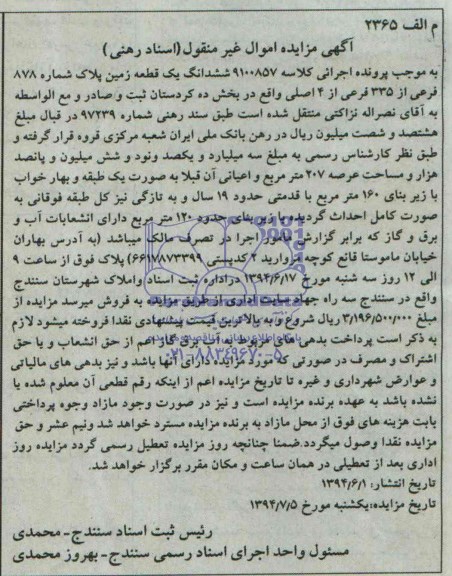 م الف ۲۳۶۵
آگهی مزایده اموال غیر منقول (اسناد رهنی)
به موجب پرونده اجرائی کلاسه ۹۱۰۰۸۵۷ ششدانگ یک قطعه زمین پلاک شماره ۸۷۸
فرعی از ۳۳۵ فرعی از ۴ اصلی واقع در بخش ده کردستان ثبت و صادر و مع الواسطه
به آقای نصراله نزاکتی منتقل شده است طبق سند رهنی شماره ۹۷۲۳۹ در قبال مبلغ
هشتصد و شصت میلیون ریال در رهن بانک ملی ایران شعبه مرکزی قروه قرار گرفته و
طبق نظر کارشناس رسمی به مبلغ سه میلیارد و یکصد ونود و شش میلیون و پانصد
هزار و مساحت عرصه ۲۰۷ متر مربع و اعیانی آن قبلا به صورت یک طبقه و بهار خواب
با زیر بنای ۱۶۰ متر مربع با قدمتی حدود ۱۹ سال و به تازگی نیز کل طبقه فوقانی به
صورت کامل احداث گردیده با زیر بنای حدود ۱۲۰ متر مربع دارای انشعابات آب و
برق و گاز که برابر گزارش مامور اجرا در تصرف مالک میباشد (به آدرس بهاران
خیابان ماموستا قانع کوچه مروارید ۲ کدپستی ۶۶۱۷۸۷۳۳۹۹) پلاک فوق از ساعت ۹
الی ۱۲ روز سه شنبه مورخ ۱۳۹۴٫۶٫۱۷ دراداره ثبت اسناد واملاک شهرستان سنندج
واقع در سنندج سه راه جهاد سایت اداری از طریق مزایده به فروش میرسد مزایده از
مبلغ ۳٫۱۹۶٫۵۰۰٫۰۰۰ ریال شروع و به بالاترین قیمت پیشنهادی نقدا فروخته میشود لازم
به ذکر است پرداخت بدهی های مربوط به آب برق گاز اعم از حق انشعاب و یا حق
اشتراک و مصرف در صورتی که مورد مزایده دارای آنها باشد و نیز بدهی های مالیاتی
و عوارض شهرداری و غیره تا تاریخ مزایده اعم از اینکه رقم قطعی آن معلوم شده یا
نشده باشد به عهده برنده مزایده است و نیز در صورت وجود مازاد وجوه پرداختی
بابت هزینه های فوق از محل مازاد به برنده مزایده مسترد خواهد شد ونیم عشر و حق
مزایده نقدا وصول میگردد.ضمنا چنانچه روز مزایده تعطیل رسمی گردد مزایده روز
اداری بعد از تعطیلی در همان ساعت و مکان مقرر برگزار خواهد شد.
تاریخ انتشار: ۱۳۹۴٫۶٫۱
تاریخ مزایده:یکشنبه مورخ ۱۳۹۴٫۷٫۵
رئیس ثبت اسناد سنندج - محمدی
مسئول واحد اجرای اسناد رسمی سنندج - بهروز محمدی
۰۲۱-۸۸۳۴۹۶۷۰-۵